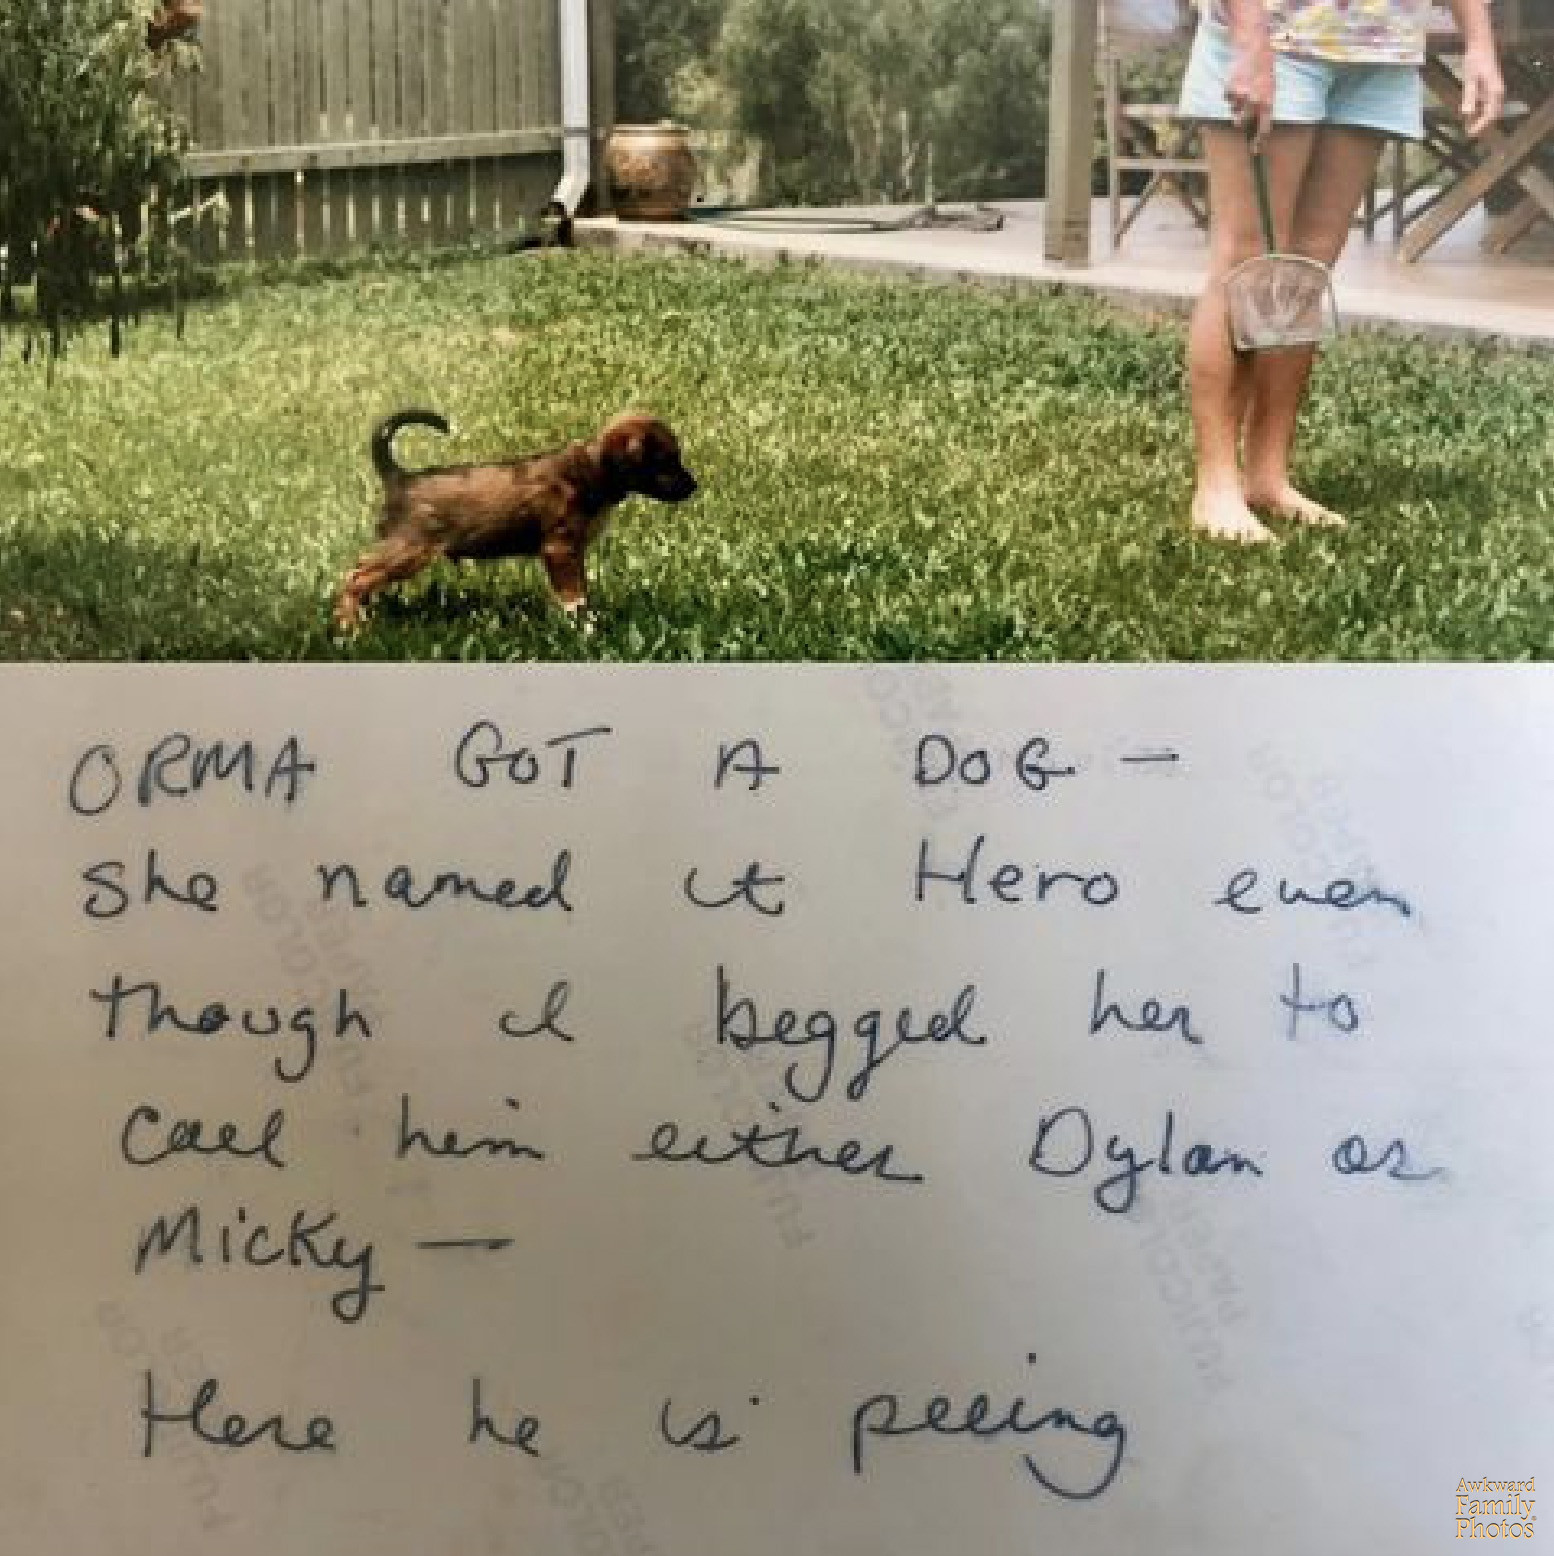 ORMA GOT A DOG —
She named it Hero even
though I begged her to
call him either Dylan or
Micky —
Here he is peeing
Awkward
Family
Photos